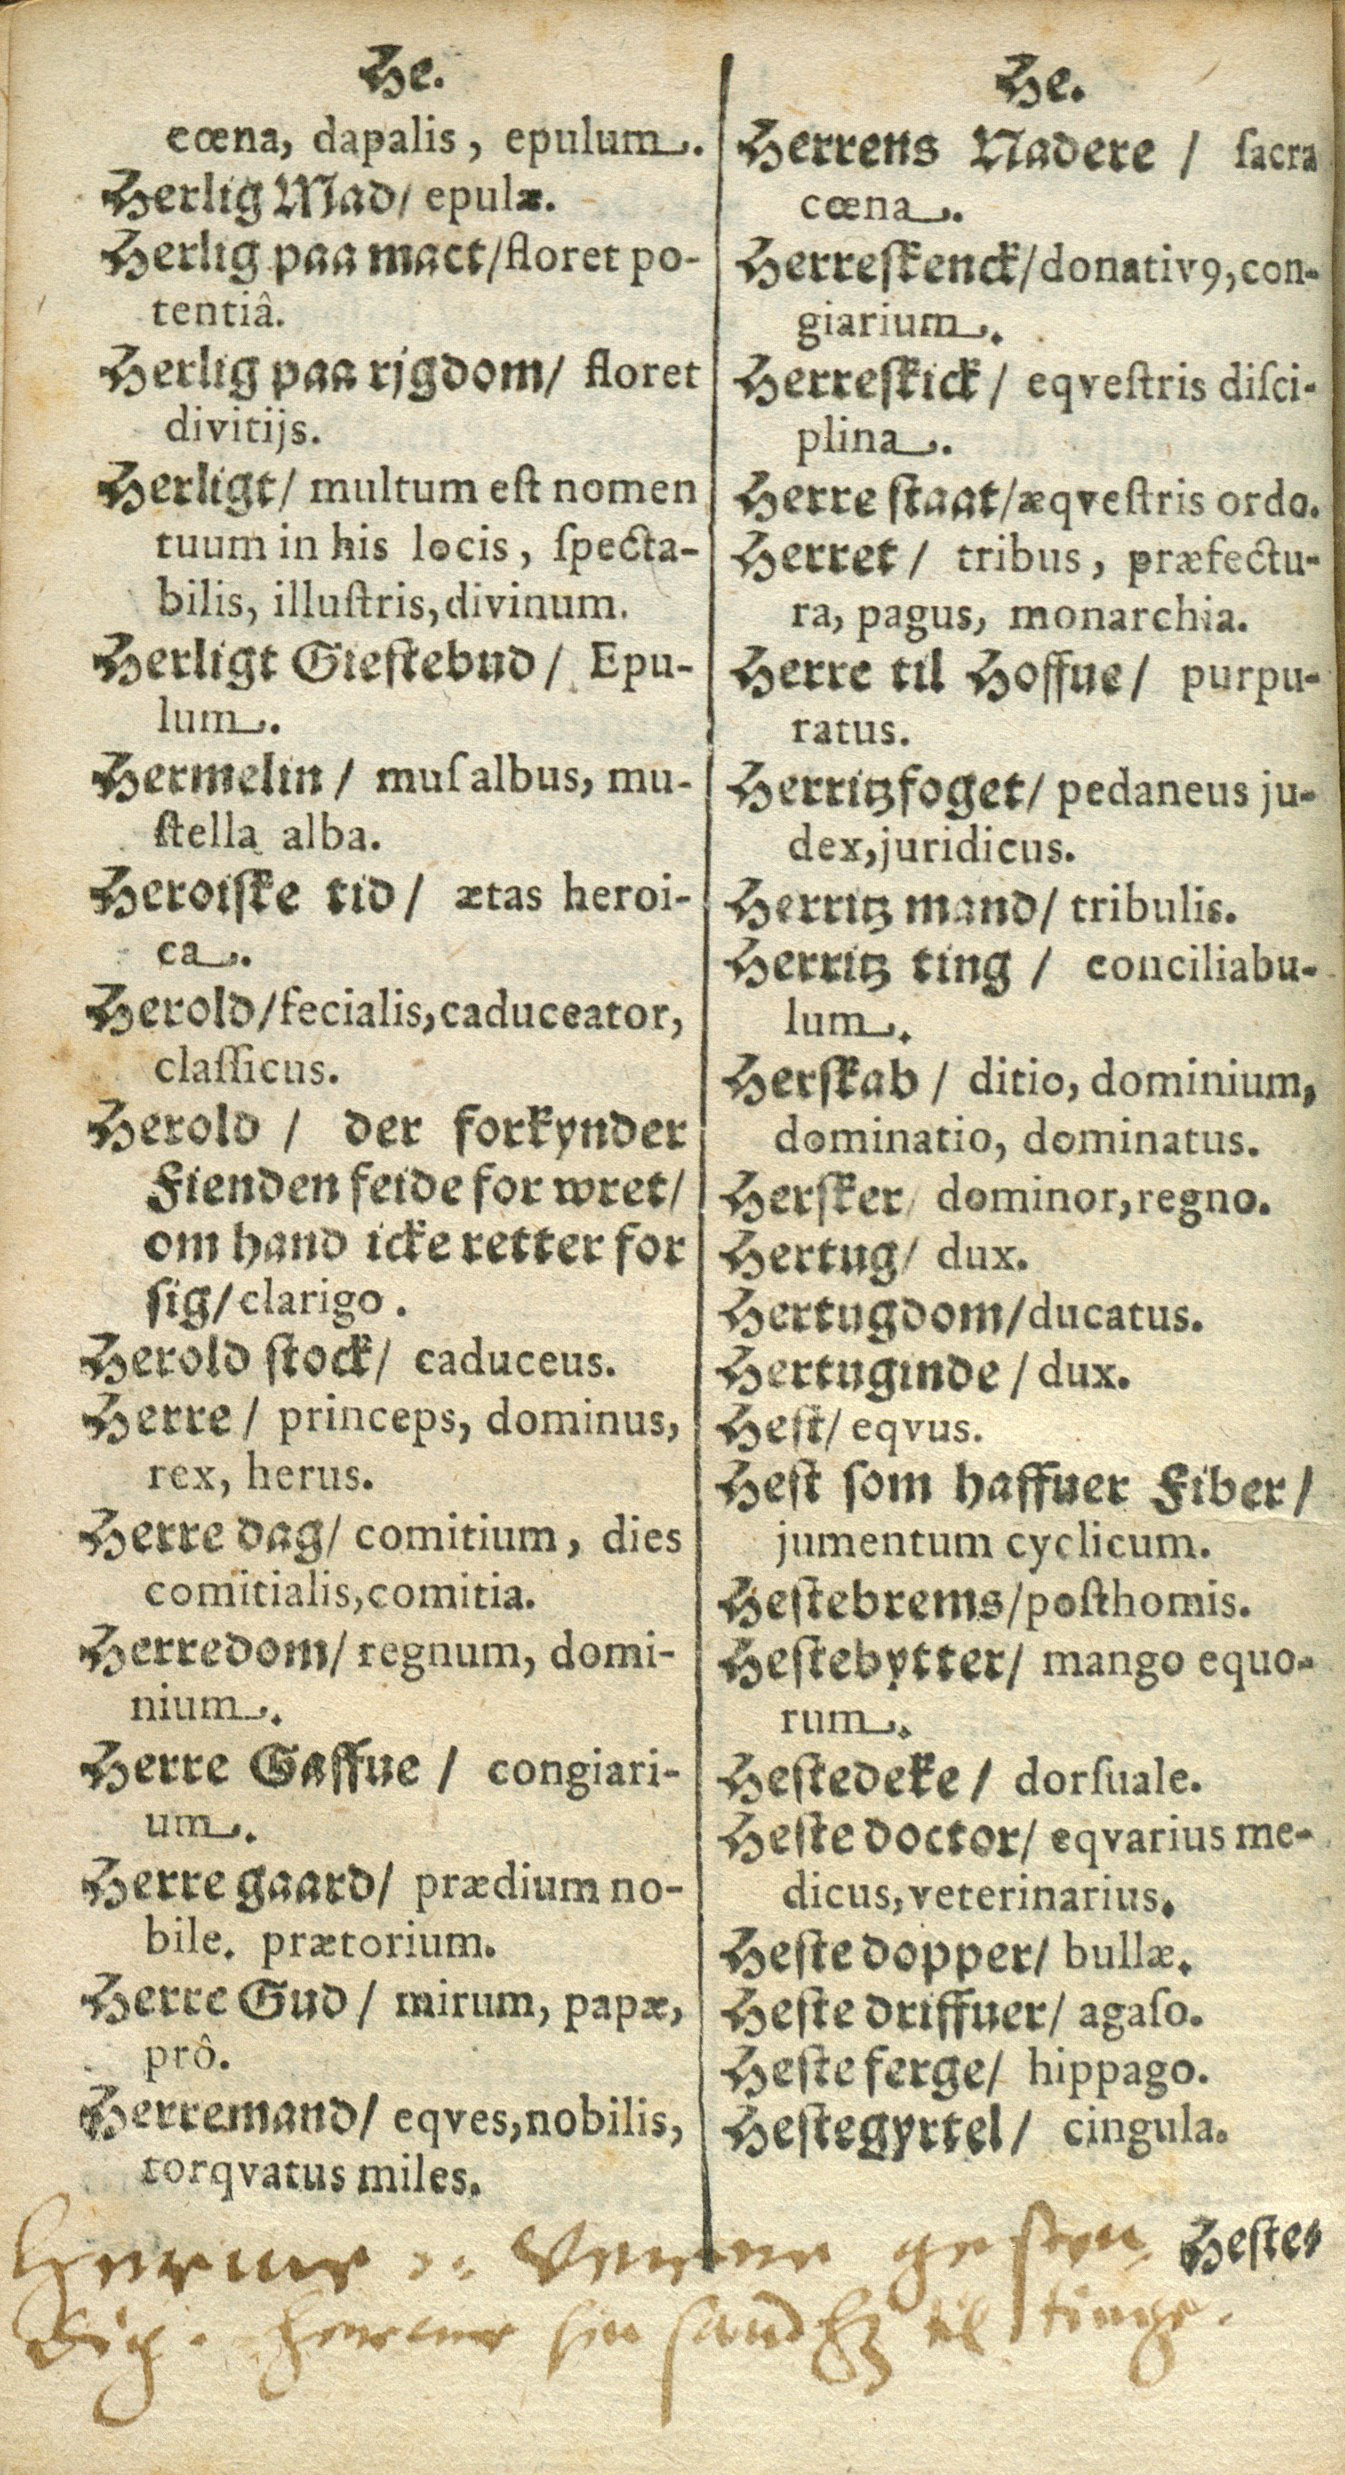 He.
cœna, dapalis, epulum.
Herlig Mad/ epulæ.
Herlig paa mact/floret po-
tentiâ.
Herlig paa rjgdom/ floret
divitijs.
Herligt/ multum eſt nomen
tuum in his locis, ſpecta-
bilis, illuſtris, divinum.
Herligt Gieſtebud/ Epu-
lum.
Hermelin/ muſ albus, mu-
ſtella alba.
Heroiſke tid/ ætas heroi-
ca.
Herold/fecialis, caduceator,
claſſicus.
Herold / der forkynder
Fienden feide for wret/
om hand icke retter for
ſig/ clarigo.
Herold ſtock/ caduceus.
Herre/ princeps, dominus,
rex, herus.
Herre dag/ comitium, dies
comitialis, comitia.
Herredom/ regnum, domi-
nium.
Herre Gaffue / congiari-
um.
Herre gaard/ prædium no-
bile. prætorium.
Herre Gud/ mirum, papæ,
prô.
Herremand/ eqves, nobilis,
torqvatus miles.
He.
Herrens Nadere / ſacra
cœna.
Herreſkenck/donativ9, con-
giarium.
Herreſkick/ eqveſtris diſci-
plina.
Herre ſtaat/æqveſtris ordo.
Herret/ tribus, præfectu-
ra, pagus, monarchia.
Herre til Hoffue/ purpu-
ratus.
Herritzfoget/ pedaneus ju-
dex, juridicus.
Herritz mand/ tribulis.
Herritz ting / conciliabu-
lum.
Herſkab/ ditio, dominium,
dominatio, dominatus.
Herſker/ dominor, regno.
Hertug/ dux.
Hertugdom/ducatus.
Hertuginde / dux.
Heſt/ eqvus.
Heſt ſom haffuer Fiber/
jumentum cyclicum.
Heſtebrems/poſthomis.
Heſtebytter/ mango equo-
rum.
Heſtedeke/ dorſuale.
Heſte doctor/ eqvarius me-
dicus, veterinarius.
Heſte dopper/ bullæ.
Heſte driffuer/ agaſo.
Heſte ferge/ hippago.
Heſtegyrtel/ cingula.
Heſte-